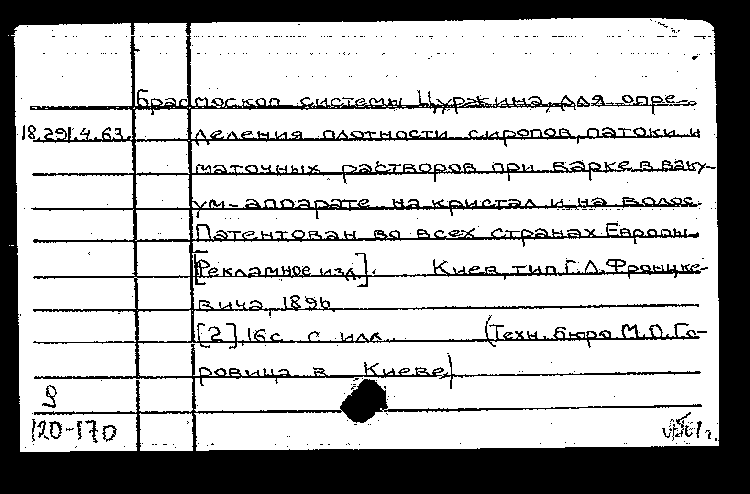 Брасмоскоп системы Цуржина, для опре-
18.291.4.63. деления плотности сиропов, патоки и
маточных растворов при варке в ваку-
ум-аппарате на кристал и на волос.
Патентован во всех странах Европы.
[Рекламное изд]. Киев, тип Г.Л. Фронцке-
вича, 1896
[2], 16 с. с илл. (Техн. бюро М.П. Го-
ровица в Киеве)
9
120-170